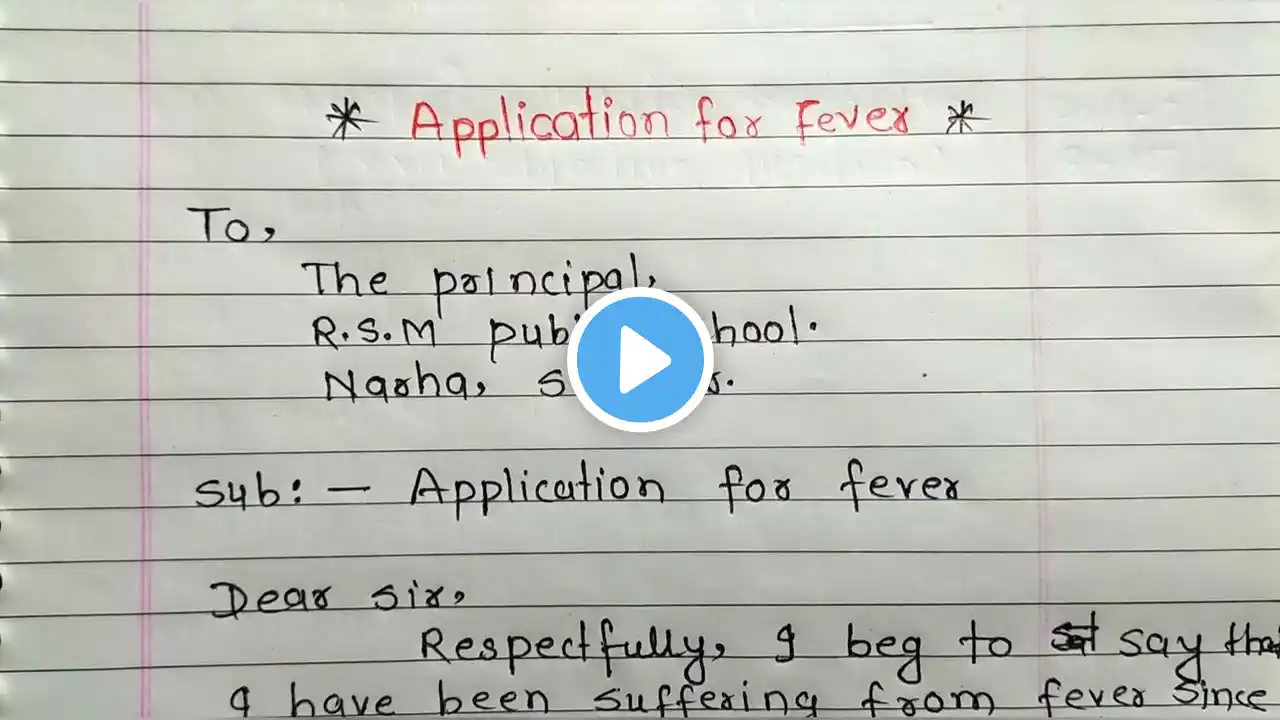 * Application for Fever *
To,
The principal,
R.S.M
Narha,
Sub:- Application for fever
Dear sir,
Respectfully, I beg to say that
I have been suffering from fever since